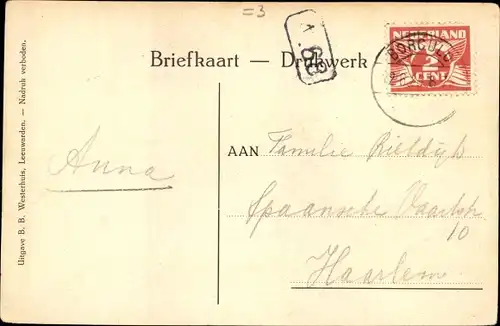 =3
Briefkaart — Drukwerk
NEDERLAND
2
CENT
BORCULO
Anna
AAN Familie Rieldijk
Spaansche Vaartstr
10
Haarlem.
Uitgave B. B. Westerhuis, Leeuwarden. — Nadruk verboden.